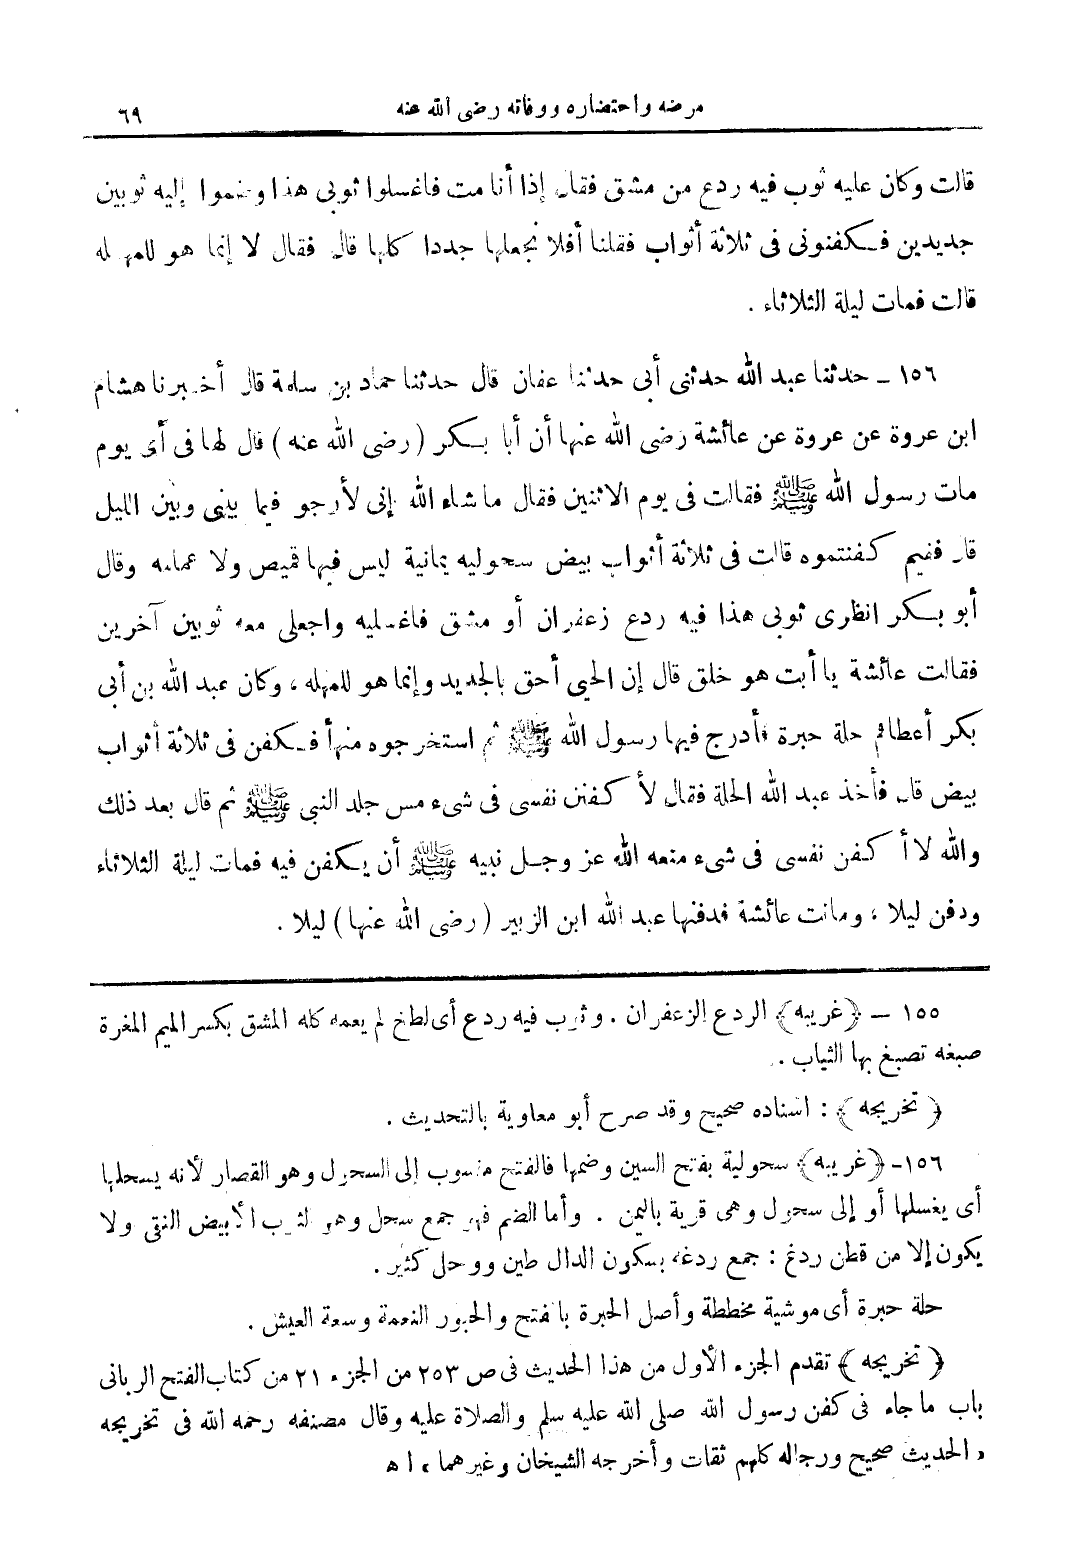 مرضه واحتضاره ووفاته رضى الله عنه ٦٩
قالت وكان عليه ثوب فيه ردع من مشق فقال إذا أنا مت فاغسلوا ثوبى هذا وضموا إليه ثوبين
جديدين فكفنونى فى ثلاثة أثواب فقلنا أفلا نجعلها جددا كلها قال فقال لا إنما هو للمهله
قالت فمات ليلة الثلاثاء .
١٥٦ ــ حدثنا عبد الله حدثنى أبى حدثنا عفان قال حدثنا حماد بن سلمة قال أخبرنا هشام
ابن عروة عن عروة عن عائشة رضى الله عنها أن أبا بكر ( رضى الله عنه ) قال لها فى أى يوم
مات رسول الله ﷺ فقالت فى يوم الاثنين فقال ما شاء الله إنى لأرجو فيما بينى وبين الليل
قال ففيم كفنتموه قالت فى ثلاثة أثواب بيض سحوليه يمانية ليس فيها قميص ولا عمامه وقال
أبو بكر انظرى ثوبى هذا فيه ردع زعفران أو مشق فاغسليه واجعلى معه ثوبين آخرين
فقالت عائشة يا أبت هو خلق قال إن الحى أحق بالجديد وإنما هو للمهله ، وكان عبد الله بن أبى
بكر أعطاهم حلة حبرة فأدرج فيها رسول الله ﷺ ثم استخرجوه منها فكفن فى ثلاثة أثواب
بيض قال فأخذ عبد الله الحلة فقال لأكفنن نفسى فى شىء مس جلد النبى ﷺ ثم قال بعد ذلك
والله لا أكفن نفسى فى شىء منعه الله عز وجل نبيه ﷺ أن يكفن فيه فمات ليلة الثلاثاء
ودفن ليلا ، وماتت عائشة فدفنها عبد الله ابن الزبير ( رضى الله عنها ) ليلا .
١٥٥ ــ ﴿غريبه﴾ الردع الزعفران . وثوب فيه ردع أى لطخ لم يعمه كله المشق بكسر الميم المغرة
صبغه تصبغ بها الثياب .
﴿ تخريجه ﴾ : اسناده صحيح وقد صرح أبو معاوية بالتحديث .
١٥٦ــ ﴿غريبه﴾ سحولية بفتح السين وضمها فالفتح منسوب إلى السحول وهو القصار لأنه يسحلها
أى يغسلها أو إلى سحول وهى قرية باليمن . وأما الضم فهو جمع سحل وهو الثوب الأبيض النقى ولا
يكون إلا من قطن ردغ : جمع ردغه بسكون الدال طين ووحل كثير .
حلة حبرة أى موشية مخططة وأصل الحبرة بالفتح والحبور النعمة وسعة العيش .
﴿ تخريجه ﴾ تقدم الجزء الأول من هذا الحديث فى ص ٢٥٣ من الجزء ٢١ من كتاب الفتح الربانى
باب ما جاء فى كفن رسول الله صلى الله عليه سلم والصلاة عليه وقال مصنفه رحمه الله فى تخريجه
، الحديث صحيح ورجاله كلهم ثقات وأخرجه الشيخان وغيرهما ، اه